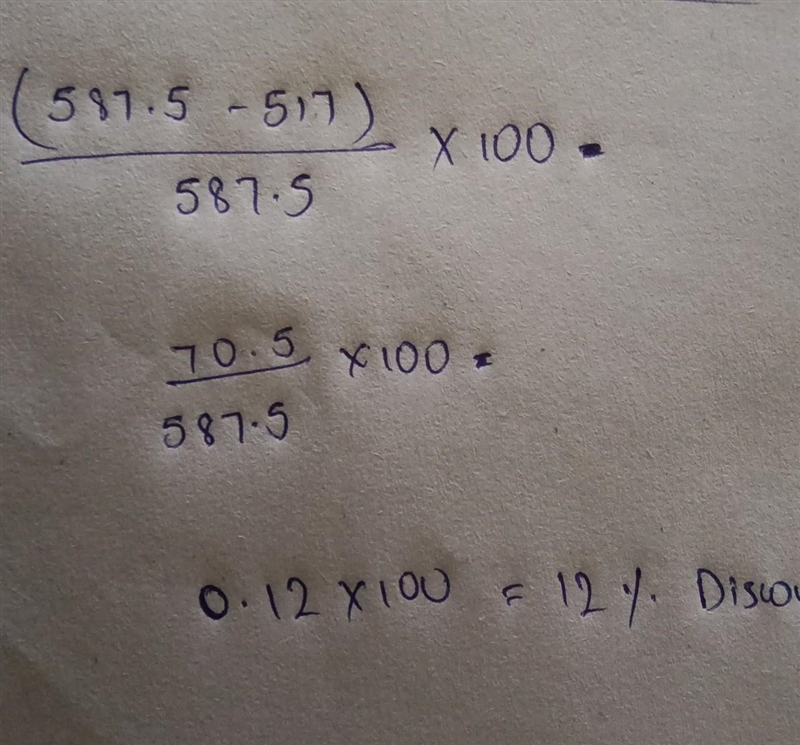 (587.5 - 517)
587.5
× 100 =
70.5
587.5
× 100 =
0.12 × 100 = 12 %. Discou